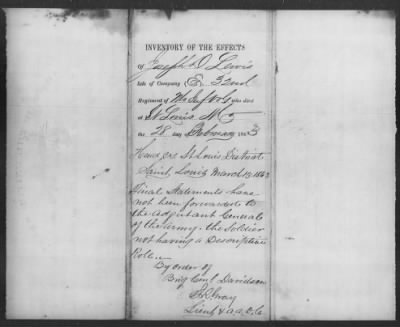 INVENTORY OF THE EFFECTS
Of Joseph O Lewis
late of Company (E) 32nd
Regiment of Mo Inf Vols who died
at St Louis Mo
the 28 day of February 1863
Head Qrs St Louis District
Saint Louis March 13 1863
Final Statements have
not been forwarded to
the adjutant General
of the army. the Soldier
not having a Descriptive
Roll.
By order of
Brig Genl Davidson
Gray
Lieut & A.A.A.G.